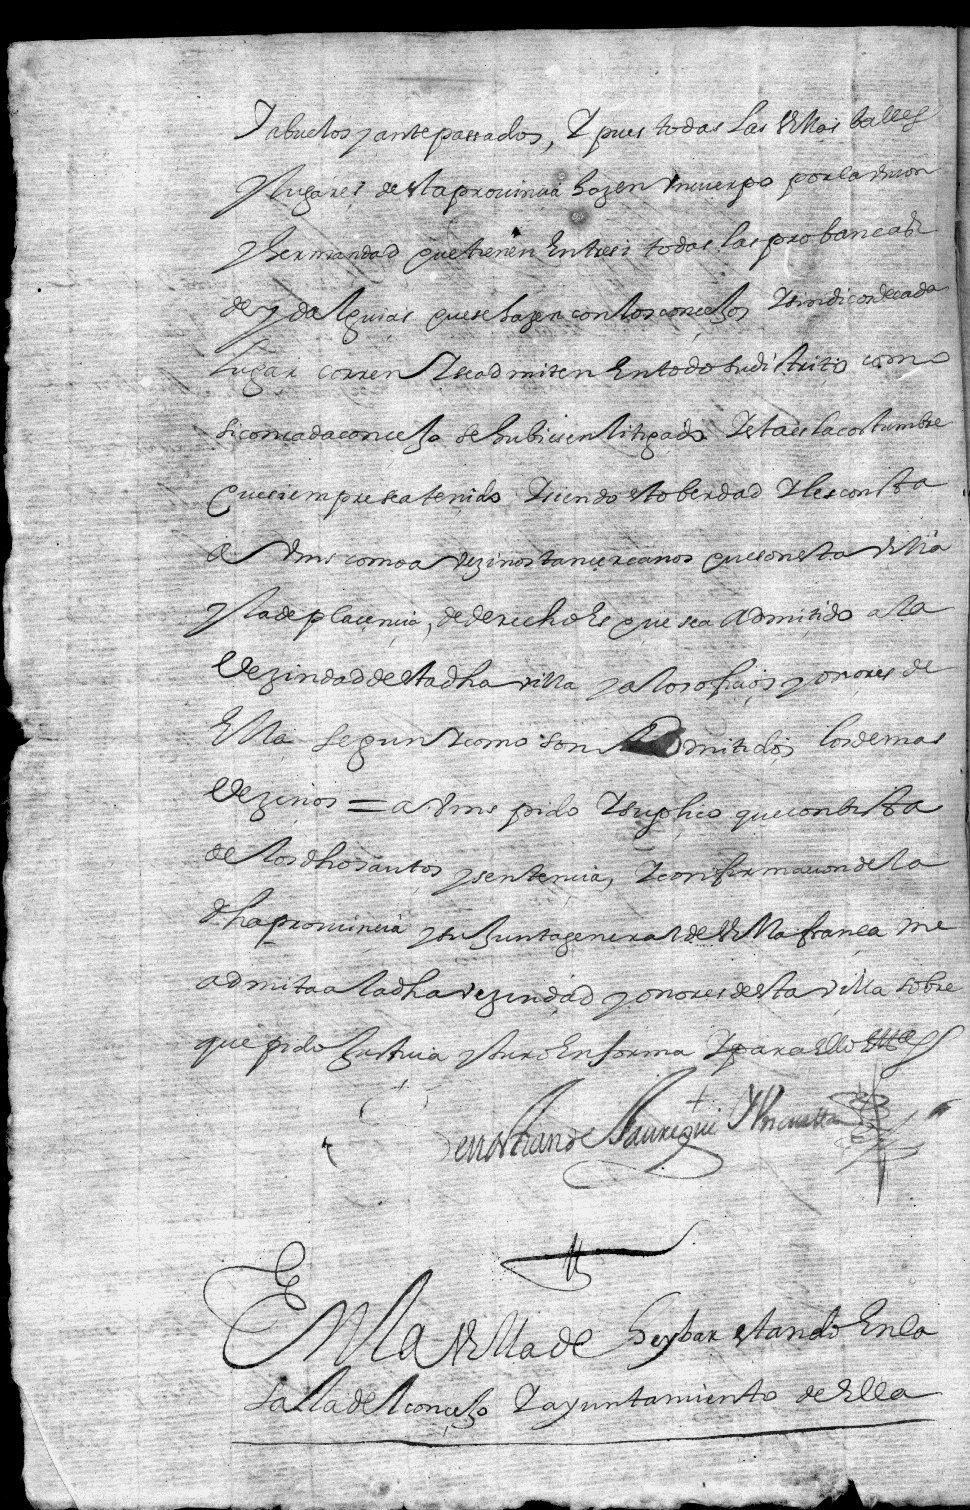 Y abuelos y antepassados, Y pues todas las Villas balles
y lugares de esta provincia hazen un cuerpo por la union
y hermandad que tienen entresi todas las probancas
de ydalguias que se hazen con los concejos Y sindicos de cada
lugar corren Y se admiten en todo su distrito como
si con cada concejo se hubiesen litigado Y esta es la costumbre
que siempre se a tenido Y siendo esto berdad Y les consta
a Vms como a vezinos tan cercanos que son esta Villa
y la de placencia, de derecho es que sea admitido a la
Vezindad de esta dha villa y a los oficios y onores de
Ella segun Y como son admitidos los demas
Vezinos = a Vms pido Y suplico que con bista
de los dhos autos y sentencia, Y confirmacion de la
dha provincia y su Junta general de Villafranca me
admita a la dha vezindad y onores de esta villa sobre
que pido Justicia y Juro En forma Y para ello Etta
Jauregui
En la Villa de heybar estando En la
sala del concejo Y ayuntamiento de ella